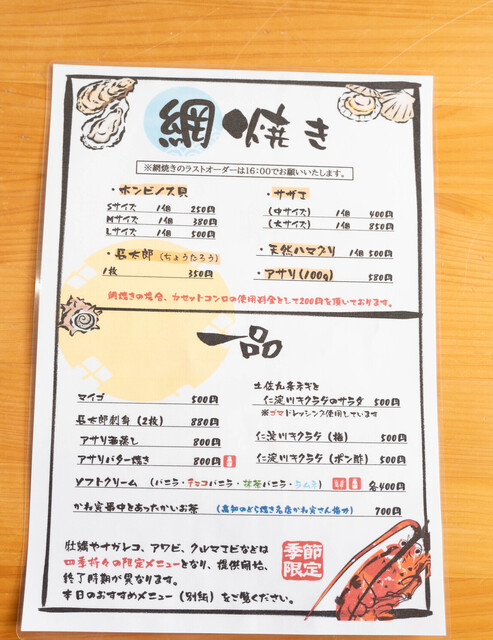 網焼き
※網焼きのラストオーダーは16:00でお願いいたします。
・ホンビノス貝
Sサイズ 1個 250円
Mサイズ 1個 380円
Lサイズ 1個 500円
・長太郎（ちょうたろう）
1枚 350円
・サザエ
（中サイズ） 1個 400円
（大サイズ） 1個 850円
・天然ハマグリ 1個 500円
・アサリ（100g） 580円
網焼きの場合、カセットコンロの使用料金として200円を頂いております。
一品
マイゴ 500円
長太郎刺身（2枚） 880円
アサリ酒蒸し 800円
アサリバター焼き 800円
土佐九条ネギと
仁淀川キクラゲのサラダ 500円
※ゴマドレッシング使用しています
仁淀川キクラゲ（梅） 500円
仁淀川キクラゲ（ポン酢） 500円
ソフトクリーム （バニラ・チョコバニラ・抹茶バニラ・ラムネ） 各400円
かね寅最中とあったかいお茶 （高知のどら焼き名店かね寅さん協力） 700円
牡蠣やサガレコ、アワビ、クルマエビなどは
四季折々の限定メニューとなり、提供開始、
終了時期が異なります。
本日のおすすめメニュー（別紙）をご覧ください。
季節
限定